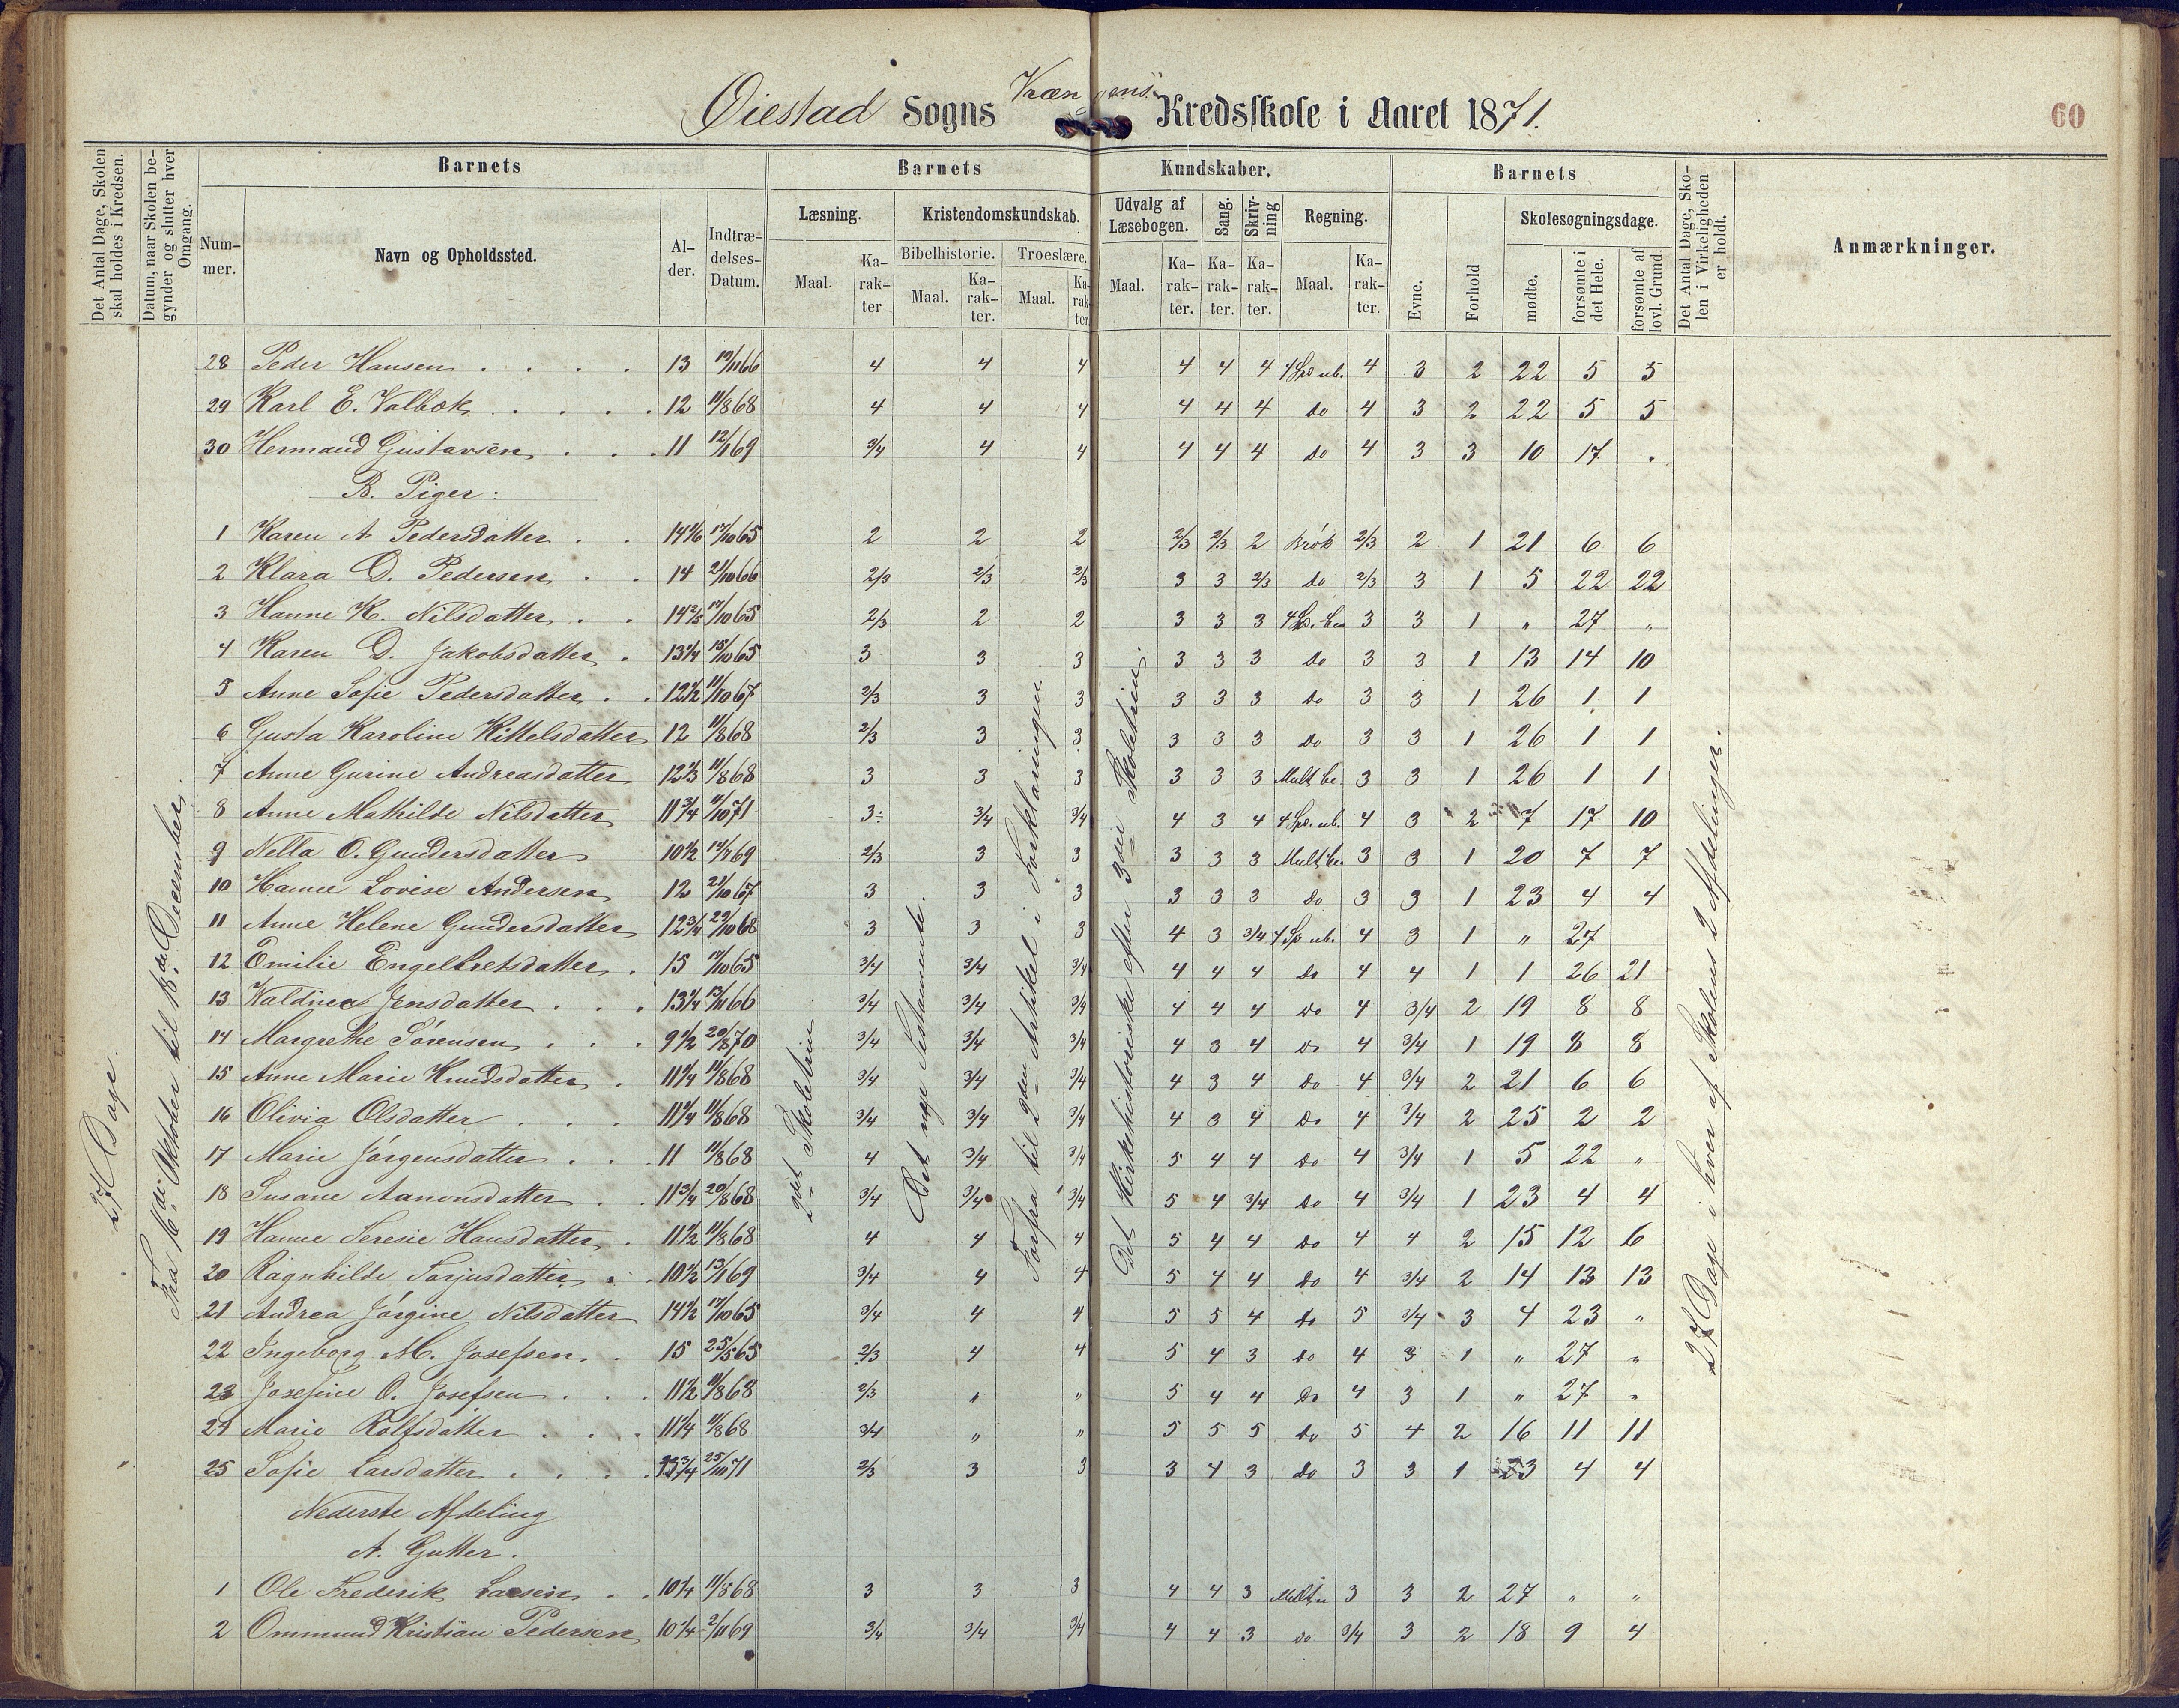 Øiestad Sogns Krængens Kredsskole i Aaret 1871.
60
Det Antal Dage, Skolen skal holdes i Kredsen.
Datum, naar Skolen begynder og slutter hver Omgang.
Barnets
Barnets
Kundskaber.
Barnets
Det Antal Dage, Skolen i Virkeligheden er holdt.
Anmærkninger.
Nummer.
Navn og Opholdssted.
Alder.
Indtrædelses-Datum.
Læsning.
Kristendomskundskab.
Udvalg af Læsebogen.
Sang.
Skrivning
Regning.
Evne.
Forhold
Skolesøgningsdage.
Bibelhistorie.
Troeslære.
Maal.
Karakter
Maal.
Karakter.
Maal.
Karakter.
Maal.
Karakter.
Karakter.
Karakter.
Maal.
Karakter.
mødte.
forsømte i det Hele.
forsømte af lovl. Grund.
27 Dage.
Fra 16de Oktober til 18de December.
2det Skoletrin
Det nye Testamente.
Forfra til 2den Artikel i Forklaringen.
Det Kirkehistoriske efter 3die Skoletrin.
27 Dage i hver af Skolens 2 Afdelinger.
28 Peder Hansen 13 19/11 66 4 4 4 4 4 4 4 Sp. ub. 4 3 2 22 5 5
29 Karl E. Valbok 12 11/8 68 4 4 4 4 4 4 do 4 3 2 22 5 5
30 Hermand Gustavsen 11 12/1 69 3/4 4 4 4 4 4 do 4 3 3 10 17 "
B. Piger:
1 Karen A Pedersdatter 17/10 65 2 2 2 2/3 2/3 2 Brök 2/3 2 1 21 6 6
2 Klara D. Pedersen 14 21/10 66 2/3 2/3 2/3 3 3 2/3 do 2/3 3 1 5 22 22
3 Hanne K. Nilsdatter 17/10 65 2/3 2 2 3 3 3 4 Sp. be 3 3 1 " 27 "
4 Karen D. Jakobsdatter 13 1/4 15/10 65 3 3 3 3 3 3 do 3 3 1 13 14 10
5 Anne Sofie Pedersdatter 12 1/2 11/10 67 2/3 3 3 3 3 3 do 3 3 1 26 1 1
6 Gusta Karoline Kittelsdatter 12 11/8 68 2/3 3 3 3 3 3 Do 3 3 1 26 1 1
7 Anne Gurine Andreasdatter 11/8 68 3 3 3 3 3 3 Mult be. 3 3 1 26 1 1
8 Anne Mathilde Nilsdatter 11 3/4 11/10 71 3- 3/4 3/4 4 3 4 4 Sp. ub. 4 3 2 7 17 10
9 Nella O. Gundersdatter 10 1/2 2/3 3 3 3 3 3 Mult be 3 3 1 20 7 7
10 Hanne Lovise Andersen 12 21/10 67 3 3 3 3 3 3 Do 3 3 1 23 4 4
11 Anne Helene Gundersdatter 12 3/4 29/10 68 3 3 3 4 3 3/4 4 Sp ub. 4 3 1 " 27
12 Emilie Engelbretsdatter 15 17/10 65 3/4 3/4 3/4 4 4 4 Do 4 4 1 1 26 21
13 Valdinea Jensdatter 13 1/4 13/11 66 3/4 3/4 3/4 4 4 4 Do 4 3/4 2 19 8 8
14 Margrethe Sørensen 9 1/2 20/8 70 3/4 3/4 3/4 4 3 4 Do 4 3/4 1 19 8 8
15 Anne Marie Knudsdatter 11 1/4 11/8 68 3/4 3/4 3/4 4 3 4 Do 4 3/4 2 21 6 6
16 Olivia Olsdatter 11 1/4 11/8 68 3/4 3/4 3/4 4 3 4 Do 4 3/4 2 25 2 2
17 Marie Jørgensdatter 11 11/8 68 4 3/4 3/4 5 4 4 Do 4 3/4 1 5 22 "
18 Susane Aanonsdatter 11 3/4 20/8 68 3/4 3/4 3/4 5 4 3/4 Do 4 3/4 1 23 4 4
19 Hanne Seresie Hansdatter 11 1/2 11/8 68 4 4 4 5 4 4 Do 4 4 2 15 12 6
20 Ragnhilde Tarjusdatter 10 1/2 13/1 69 3/4 4 4 5 4 4 do 4 3/4 2 14 13 13
21 Andrea Jørgine Nilsdatter 14 1/2 17/10 65 3/4 4 4 5 5 4 do 5 3/4 3 4 23 "
22 Ingeborg M. Josefsen 15 25/5 65 2/3 4 4 5 4 3 do 4 3 1 " 27 "
23 Josefine O. Josefsen 11 1/2 11/8 68 2/3 " " 5 4 4 Do 4 3 1 " 27 "
24 Marie Rolfsdatter 11 1/4 11/8 68 3/4 " " 5 5 5 do 5 4 2 16 11 11
25 Sofie Larsdatter 25/10 71 2/3 3 3 3 4 3 do 3 3 1 23 4 4
Nederste Afdeling
A. Gutter.
1 Ole Frederik Larsen 10 1/4 11/8 68 3 3 3 4 4 3 3 3 2 27 " "
2 Ommund Kristian Pedersen 10 1/4 2/11 69 3/4 3/4 3/4 4 4 3 do 3/4 3 2 18 9 4